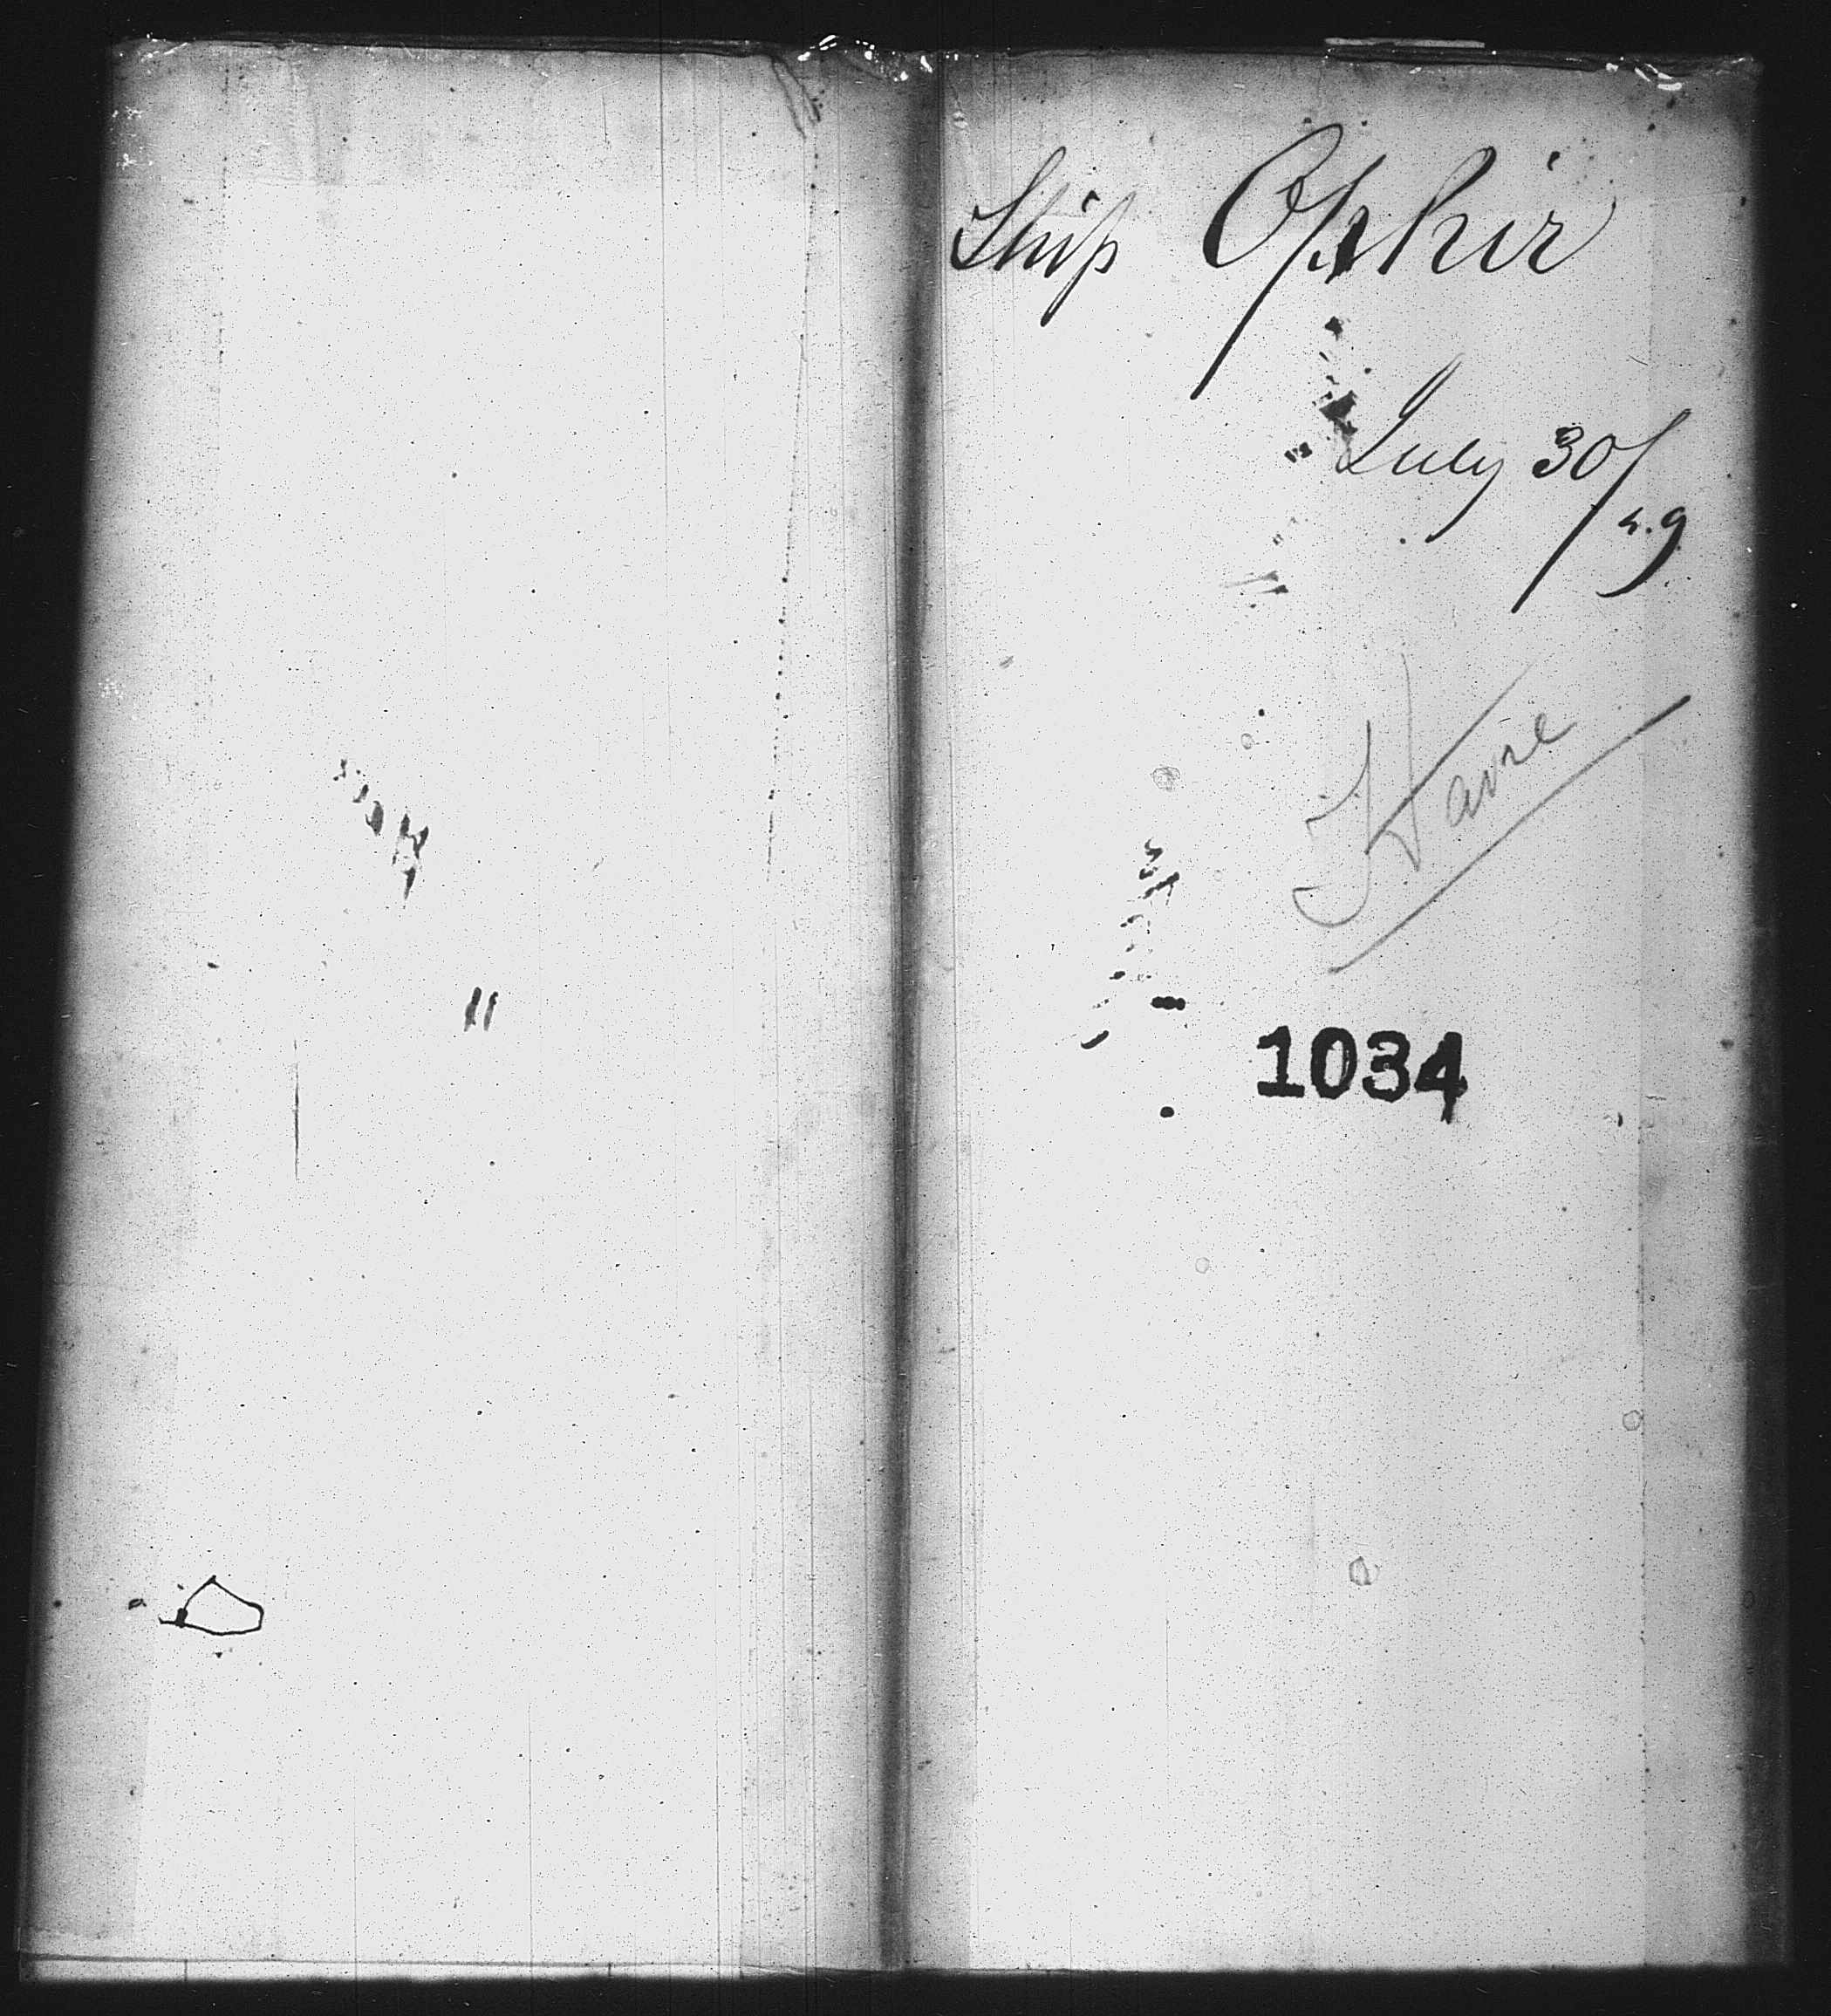 Ship Ophir
July 30/49
Havre
1034